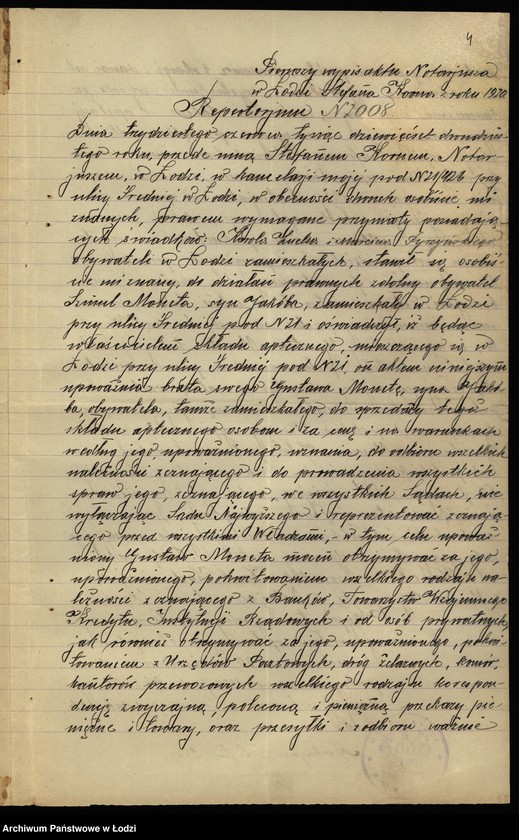 4
Pierwszy wypis aktu Notarjusza
w Łodzi Stefana Korna z roku 1920
Repertorjum N 2008.
Dnia trzydziestego czerwca, tysiąc dziewięćset dwudzies-
tego roku, przede mną Stefanem Kornem, Notar-
juszem, w Łodzi, w kancelarji mojej pod N 21/426 przy
ulicy Średniej w Łodzi, w obecności dwuch osobiście mi
znanych, prawem wymagane przymioty posiadają-
cych świadków: Karola i Marcina
obywateli w Łodzi zamieszkałych, stawił się osobiś-
cie mi znany, do działań prawnych zdolny obywatel
Szmul Moneta, syn Jakóba, zamieszkały w Łodzi
przy ulicy Średniej pod N 21 i oświadczył, iż będąc
właścicielem Składu aptecznego, mieszczącego się w
Łodzi przy ulicy Średniej pod N 21, on aktem niniejszym
upoważnia brata swego Gustawa Monetę, syna Jakó-
ba, obywatela, tamże zamieszkałego, do sprzedaży tegoż
składu aptecznego osobom i za cenę i na warunkach
według jego, upoważnionego, uznania, do odbioru wszelkich
należności zeznającego i do prowadzenia wszystkich
spraw jego, zeznającego, we wszystkich Sądach, nie
wyłączając Sądu Najwyższego i reprezentować zeznają-
cego przed wszystkimi Władzami, - w tym celu upoważ-
niony Gustaw Moneta mocen otrzymywać za jego,
upoważnionego, pokwitowaniem wszelkiego rodzaju na-
leżności zeznającego z Banków, Towarzystw Wzajemnego
Kredytu, Instytucji Rządowych i od osób prywatnych,
jak również otrzymywać za jego, upoważnionego, pokwi-
towaniem z Urzędów Pocztowych, dróg żelaznych, komór,
kantorów przewozowych wszelkiego rodzaju korespon-
dencję zwyczajną, poleconą i pieniężną przekazy pie-
niężne i towary, oraz przesyłki i z odbioru ważnie
Archiwum Państwowe w Łodzi